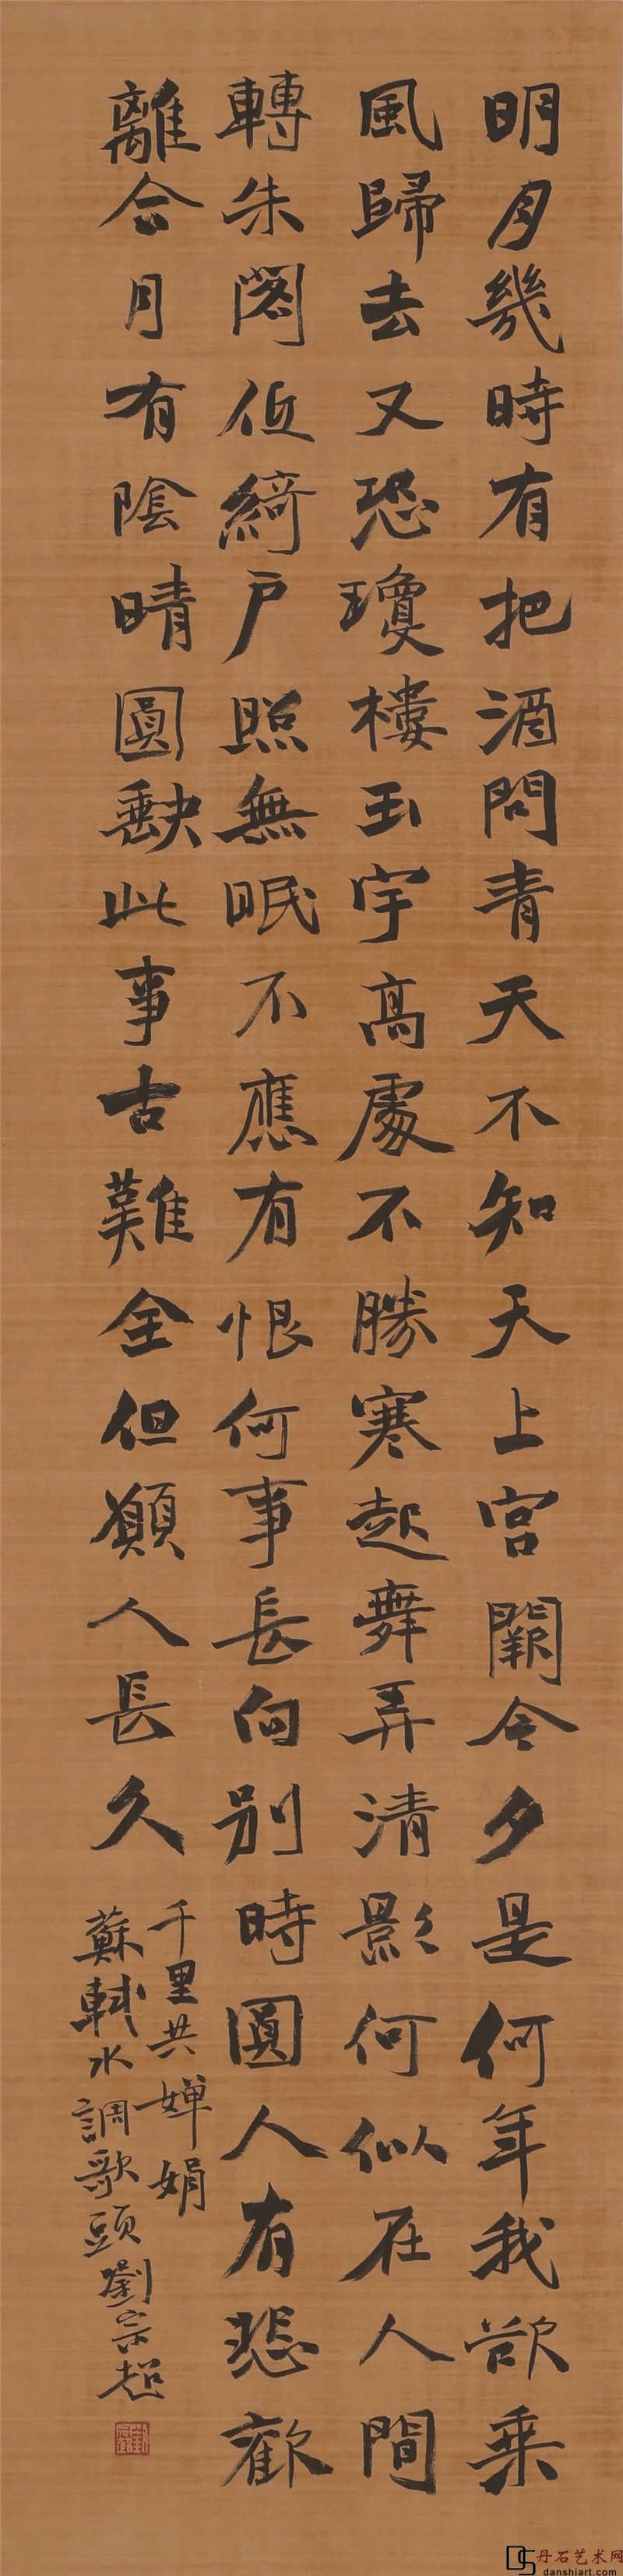 明月幾時有把酒問青天不知天上宮闕今夕是何年我欲乘
風歸去又恐瓊樓玉宇高處不勝寒起舞弄清影何似在人間
轉朱閣低綺戶照無眠不應有恨何事長向別時圓人有悲歡
離合月有陰晴圓缺此事古難全但願人長久
千里共嬋娟
蘇軾水調歌頭劉宗超
丹石艺术网
danshiart.com